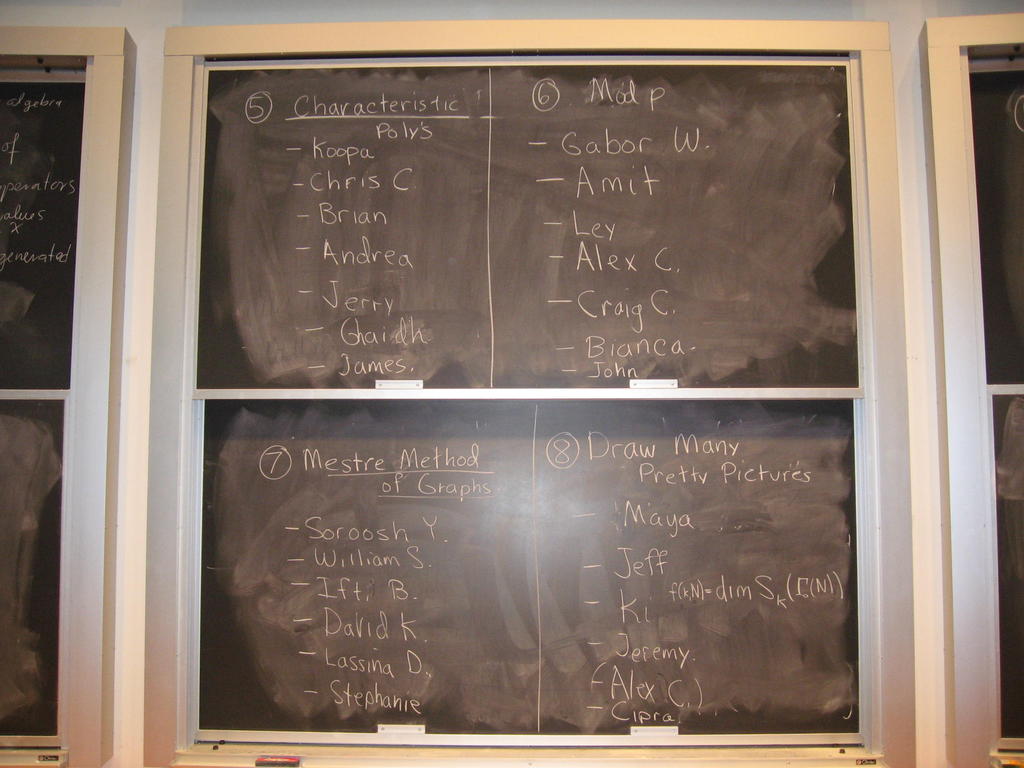 algebra
of
operators
values
x
generated
⑤ Characteristic
Poly's
- Koopa
- Chris C.
- Brian
- Andrea
- Jerry
- Ghaidh
- James.
⑥ Mod p
- Gabor W.
- Amit
- Ley
- Alex C.
- Craig C.
- Bianca
- John
⑦ Mestre Method
of Graphs
- Soroosh Y.
- William S.
- Ifti B.
- David K.
- Lassina D.
- Stephanie
⑧ Draw Many
Pretty Pictures
- Maya
- Jeff
f(k,N)=dim Sₖ(Γ₁(N))
- Ki
- Jeremy
- (Alex C.)
- Cipra